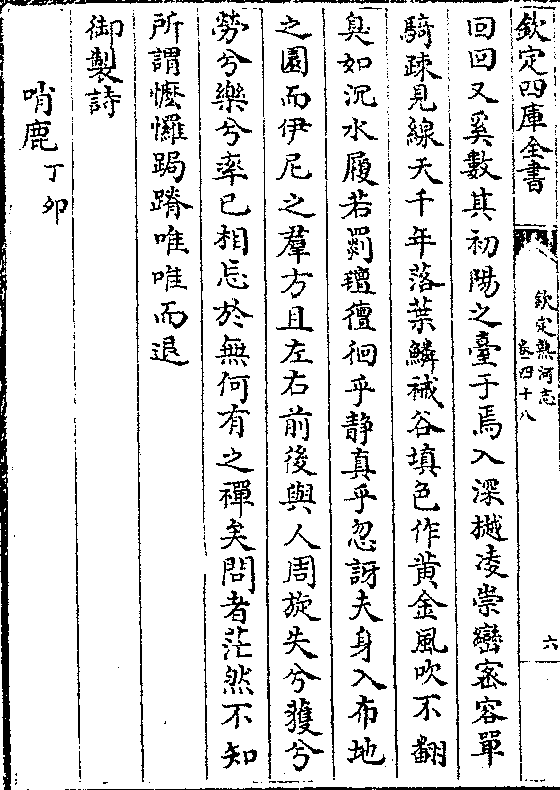 欽定四庫全書
欽定熱河志
卷四十八
六
回回又奚數其初陽之臺于焉入深樾凌崇巒宻容單
騎疎見線天千年落葉鱗裓谷填色作黃金風吹不翻
臭如沉水履若罽氊徊乎静真乎忽訝夫身入布地
之園而伊尼之羣方且左右前後與人周旋失兮獲兮
勞兮樂兮率已相忘於無何有之禪矣問者茫然不知
所謂㦬㦬跼蹐唯唯而退
御製詩
哨鹿丁卯